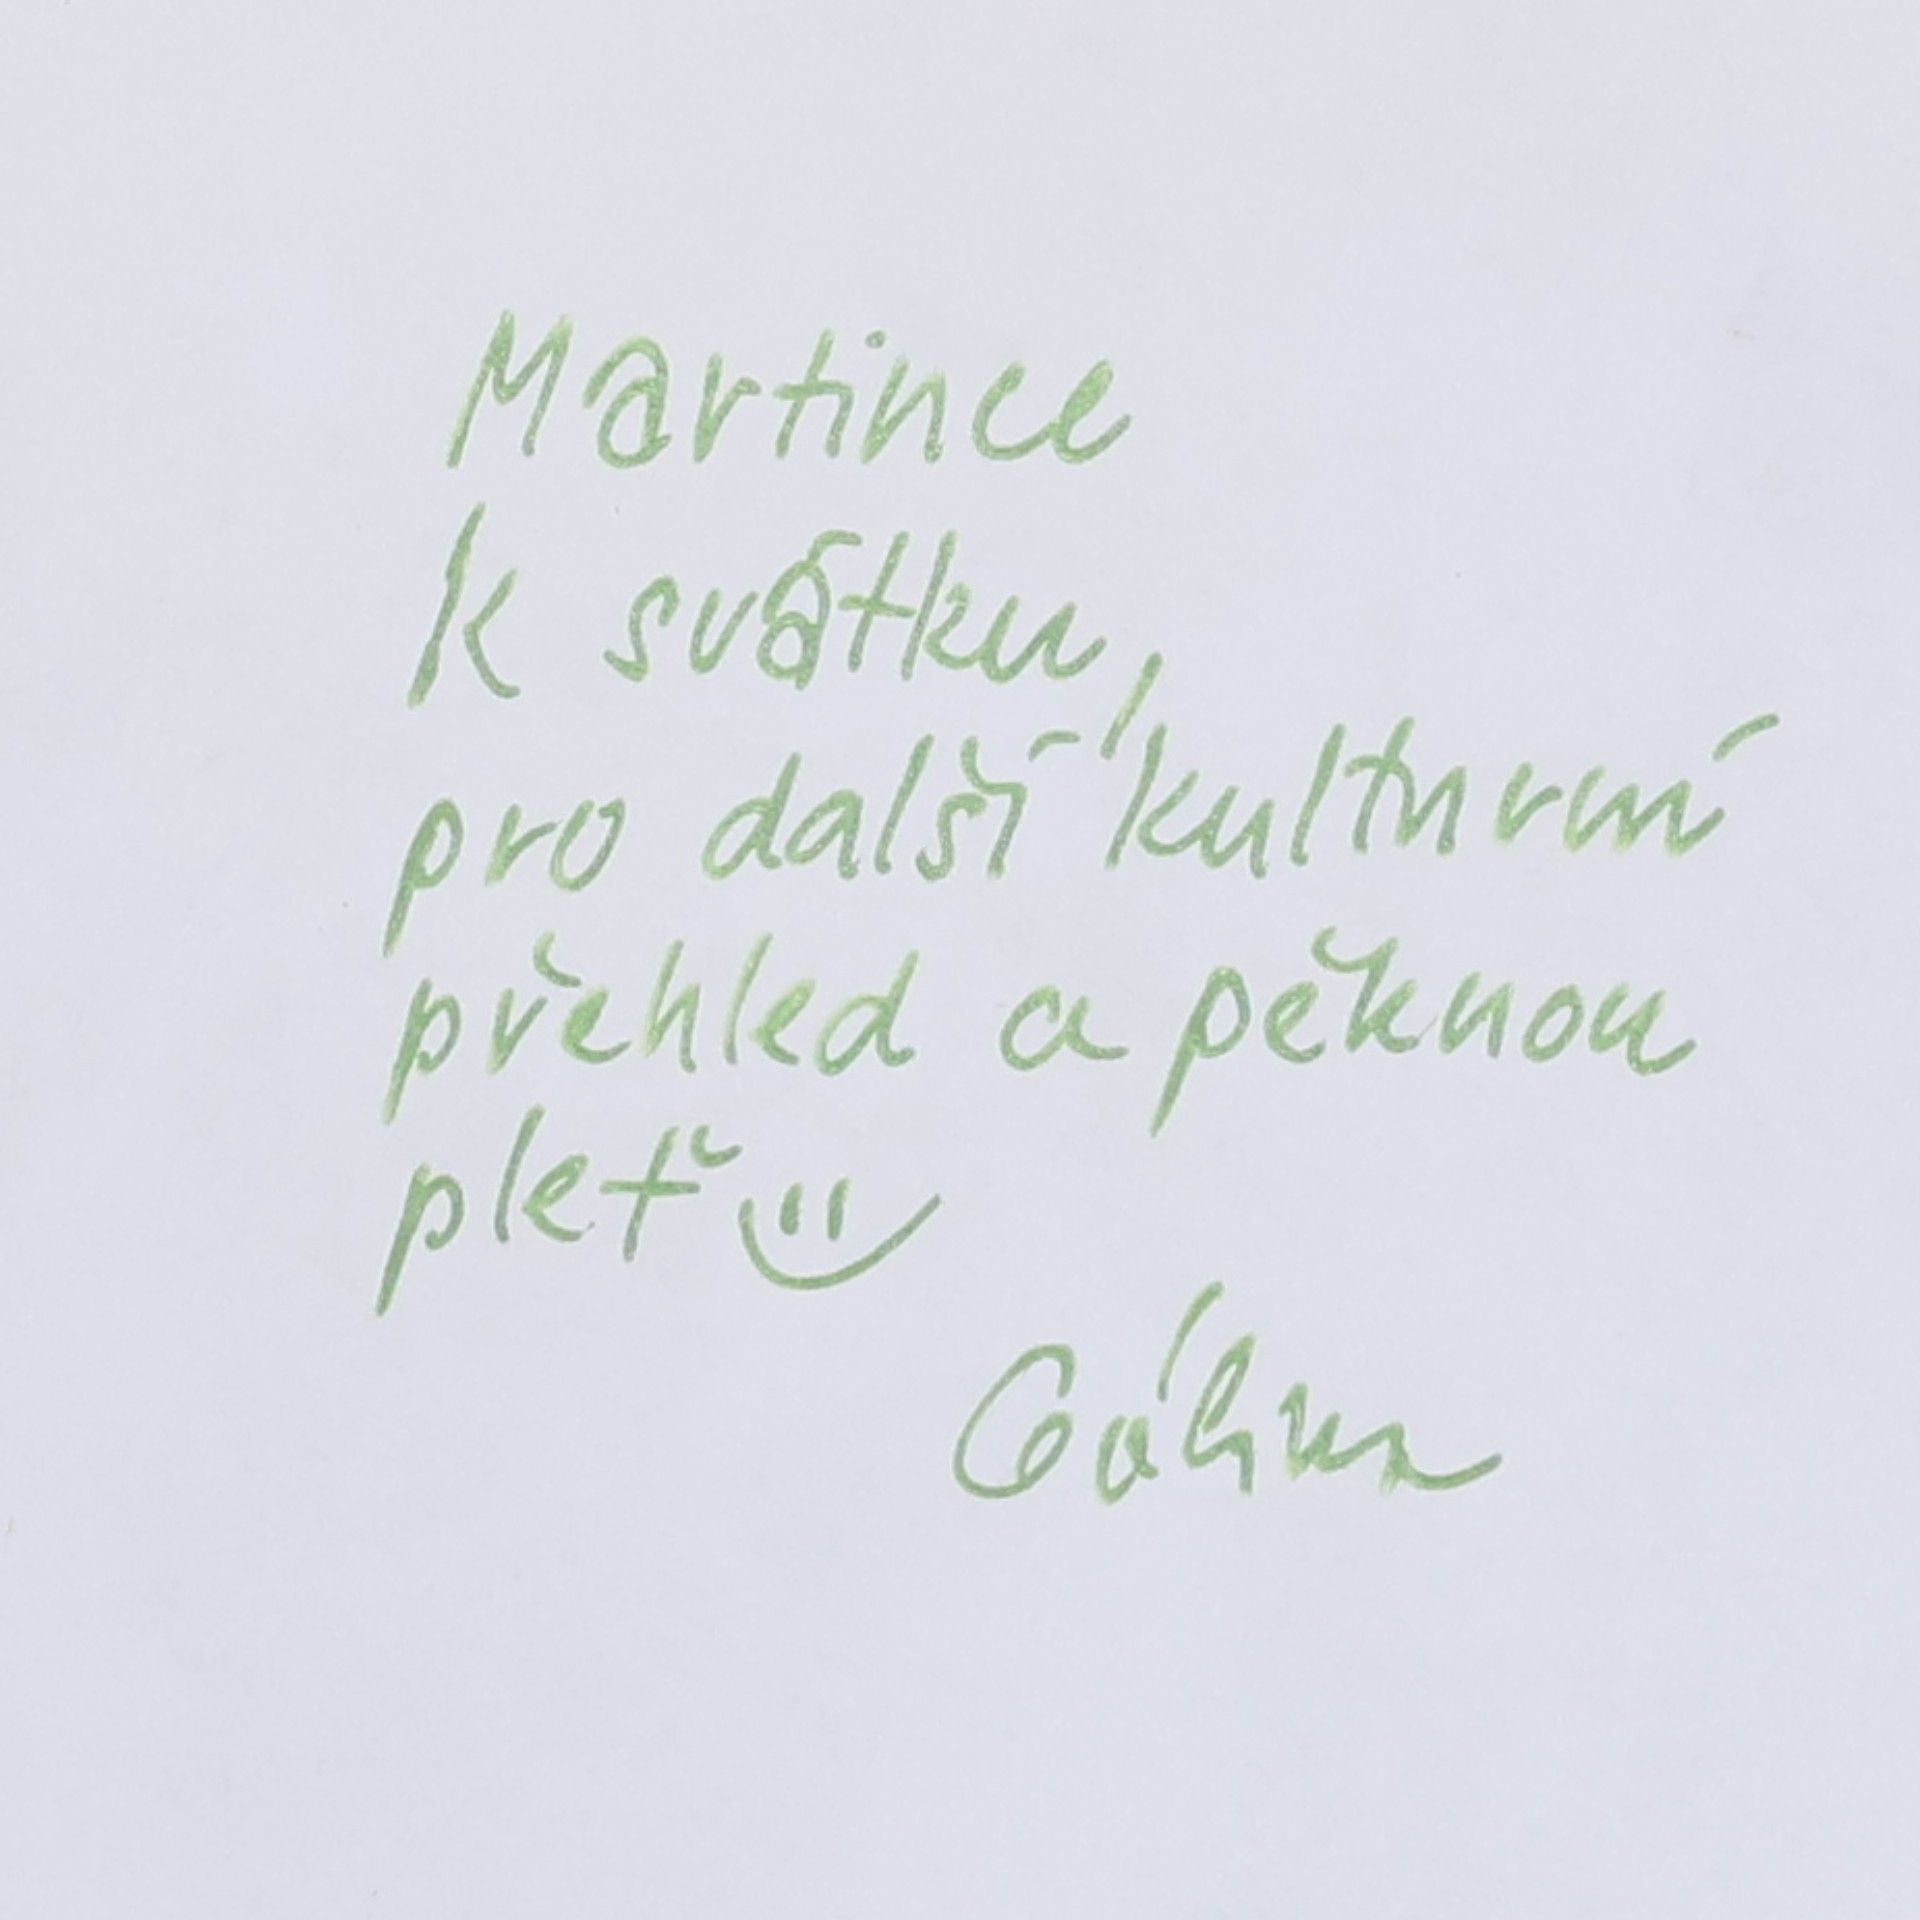 Martince
k svátku,
pro další kulturní
přehled a pěknou
pleť